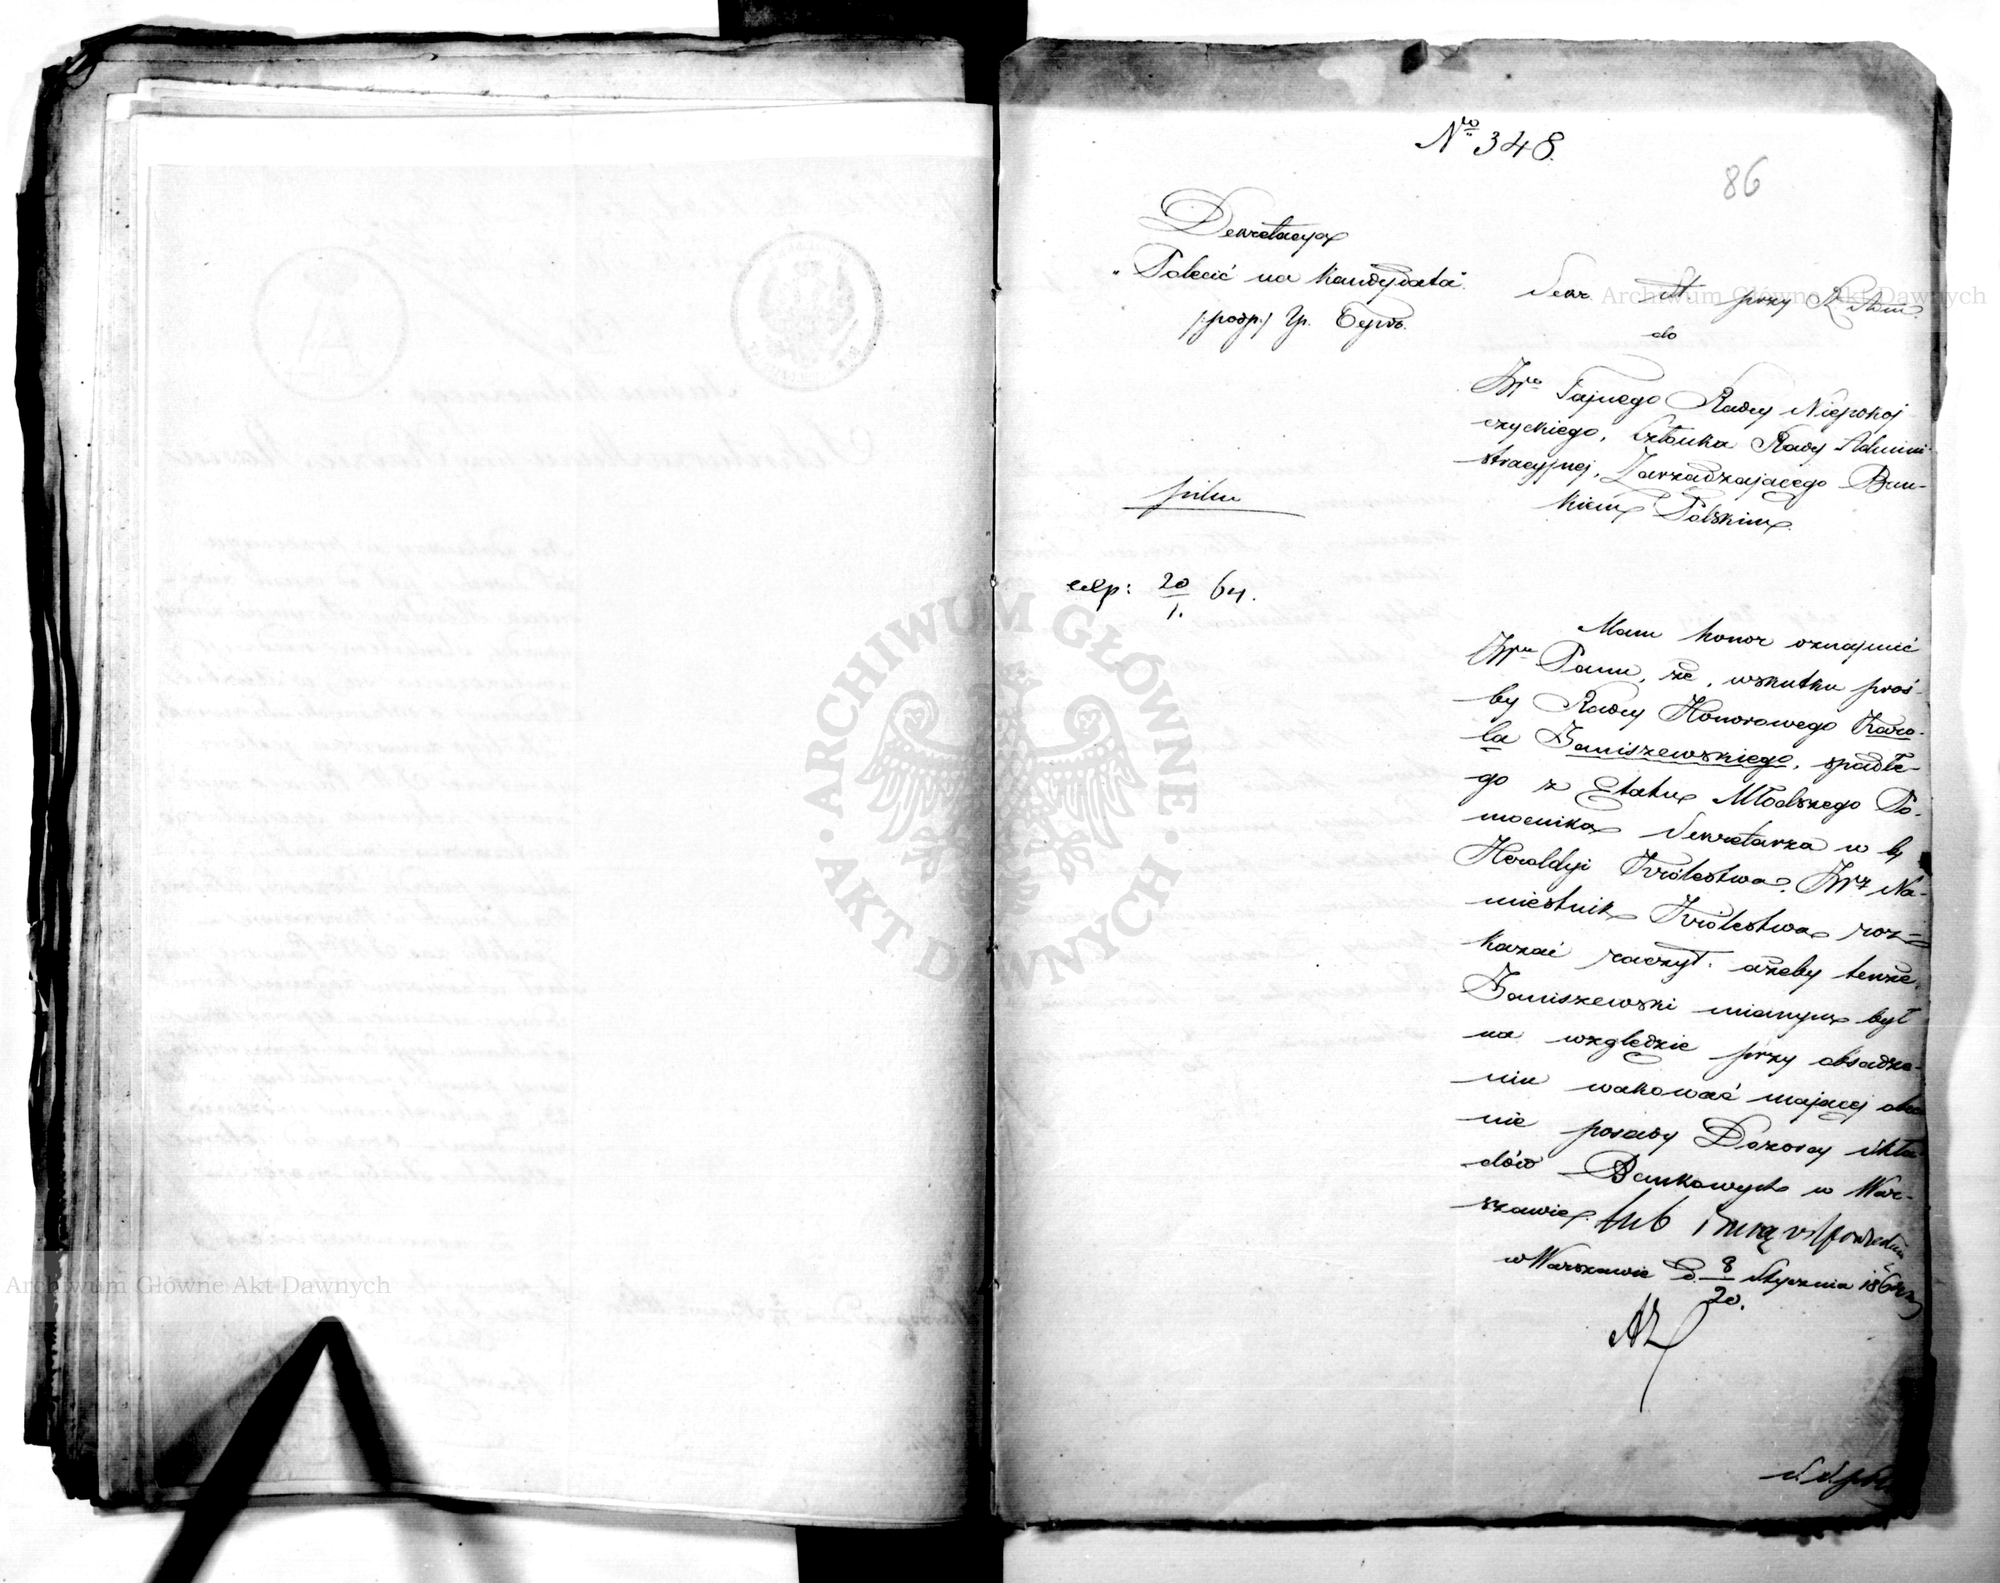 Nro 348.
86
Dekretacya
"Polecić na kandydata".
/:podp:/ Гр. Бергъ.
pilne
exp: 20/1. 64.
Sekr. St. przy R. Adm.
do
JWo Tajnego Radcy Niepokoj
czyckiego, Członka Rady Admini-
stracyjnej, Zarządzającego Ban-
kiem Polskim.
Mam honor oznajmić
JWu Panu, że, wskutku proś-
by Radcy Honorowego Karo-
la Janiszewskiego, spadłe-
go z Etatu Młodszego Po-
mocnika Sekretarza w b.
Heroldyi Królestwa, JWz Na-
miestnik Królestwa roz-
kazać raczył, ażeby tenże
Janiszewski mianym był
na względzie przy obsadze-
niu wakować mającej obec
nie posady Dozorcy skła
dów Bankowych w War-
szawie, lub inną
w Warszawie d. 8/20. Stycznia 1864 r.
ARCHIWUM GŁÓWNE · AKT DAWNYCH ·
Archiwum Główne Akt Dawnych
Archiwum Główne Akt Dawnych